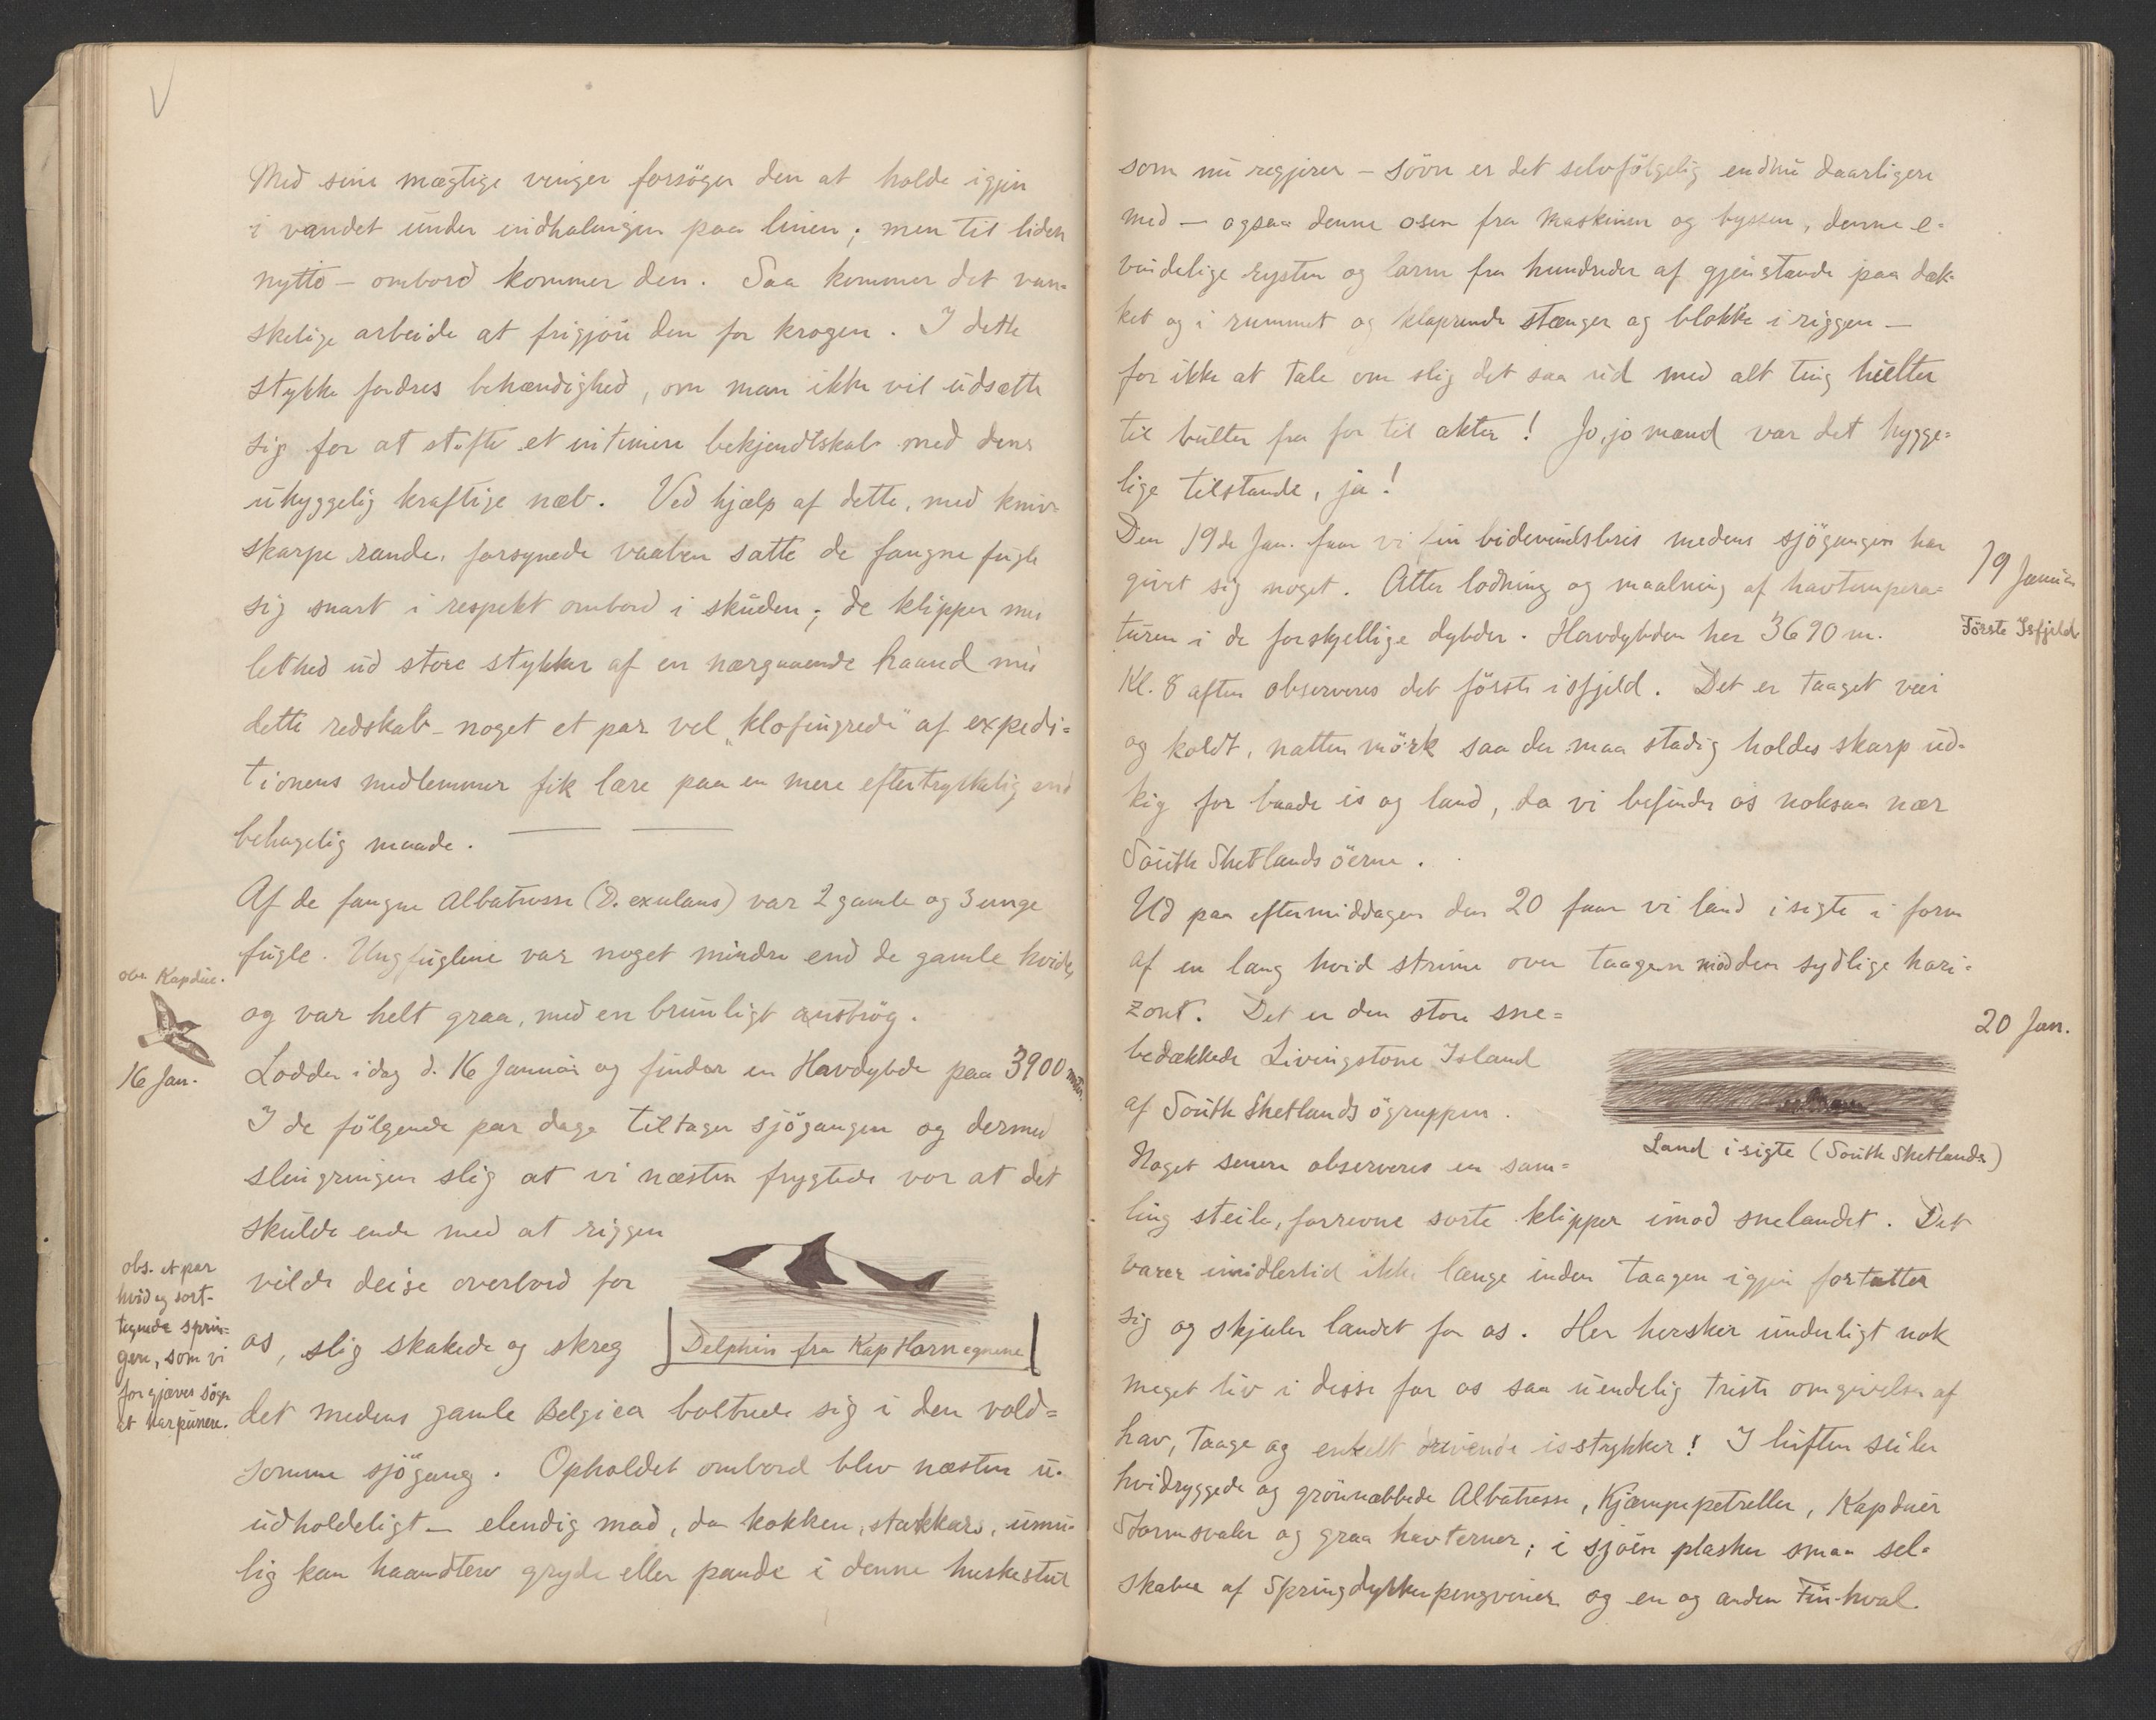 V
Med sine mægtige vinger forsöger den at holde igjen
i vandet under indhalingen paa linen; men til liden
nytte – ombord kommer den. Saa kommer det van=
skelige arbeide at frigjöre den for krogen. I dette
stykke fordres behændighed, om man ikke vil udsætte
sig for at stifte et intimere bekjendtskab med dens
uhyggelig kraftige næb. Ved hjælp af dette, med kniv-
skarpe rande, forsynede vaaben satte de fangne fugle
sig snart i respekt ombord i skuden; de klipper med
lethed ud store stykker af en nærgaaende haand med
dette redskab – noget et par vel „klofingrede" af expedi=
tionens medlemmer fik lære paa en mere eftertrykkelig end
behagelig maade.
Af de fangne Albatrosse (D. exulans) var 2 gamle og 3 unge
fugle. Ungfuglene var noget mindre end de gamle hvide,
og var helt graa, med en brunligt anströg.
obs. Kapdue.
16 Jan.
Lodder idag d. 16 Januar og finder en Havdybde paa 3900 meter.
I de fölgende par dage tiltager sjögangen og dermed
slingringen slig at vi næsten frygtede vor at det
skulde ende med at riggen
vilde deise overbord for
os, slig skakede og skreg
Delphin fra Kap Horn egnene
obs. et par
hvid og sort-
tegnede sprin=
gere, som vi
forgjæves sögte
at harpunere.
det medens gamle Belgica boltrede sig i den vold=
somme sjögang. Opholdet ombord blev næsten u-
udholdeligt – elendig mad, da kokken, stakkars, umu-
lig kan haandtere gryde eller pande i denne huskestue
som nu regjerer – sövn er det selvfölgelig endnu daarligere
med – ogsaa denne osen fra Maskinen og byssen, denne e-
vindelige rysten og larm fra hundreder af gjenstande paa dæk-
ket og i rummet og klaprende stænger og blokke i riggen –
for ikke at tale om slig det saa ud med alt ting hulter
til bulter fra for til akter! Jo, jo mænd var det hygge=
lige tilstande, ja!
Den 19de Jan. faar vi fin bidevindsbris medens sjögangen har
givet sig noget. Atter lodning og maalning af havtempera=
turen i de forskjellige dybder. Havdybden her 3690 m.
19 Januar
Förste Isfjeld
Kl. 8 aften observeres det förste isfjeld. Det er taaget veir
og koldt, natten mörk saa der maa stadig holdes skarp ud-
kig for baade is og land, da vi befinder os noksaa nær
South Shetlandsöerne.
Ud paa eftermiddagen den 20 faar vi land isigte i form
af en lang hvid strime over taagen mod den sydlige hori=
zont. Det er den store sne=
bedækkede Livingstone Island
af South Shetlands ögruppen.
20 Jan.
Land i sigte (South Shetlands)
Noget senere observeres en sam=
ling steile, forrevne sorte klipper imod snelandet. Det
varer imidlertid ikke længe inden taagen igjen fortætter
sig og skjuler landet for os. Her hersker underligt nok
meget liv i disse for os saa uendelig triste omgivelser af
hav, taage og enkelt drivende isstykker! I luften seiler
hvidryggede og grönnæbbede Albatrosse, Kjæmpepetreller, Kapduer
Stormsvaler og graa havterner; i sjöen plasker smaa sel-
skaber af Springdykkerpengviner og en og anden Fin-hval.